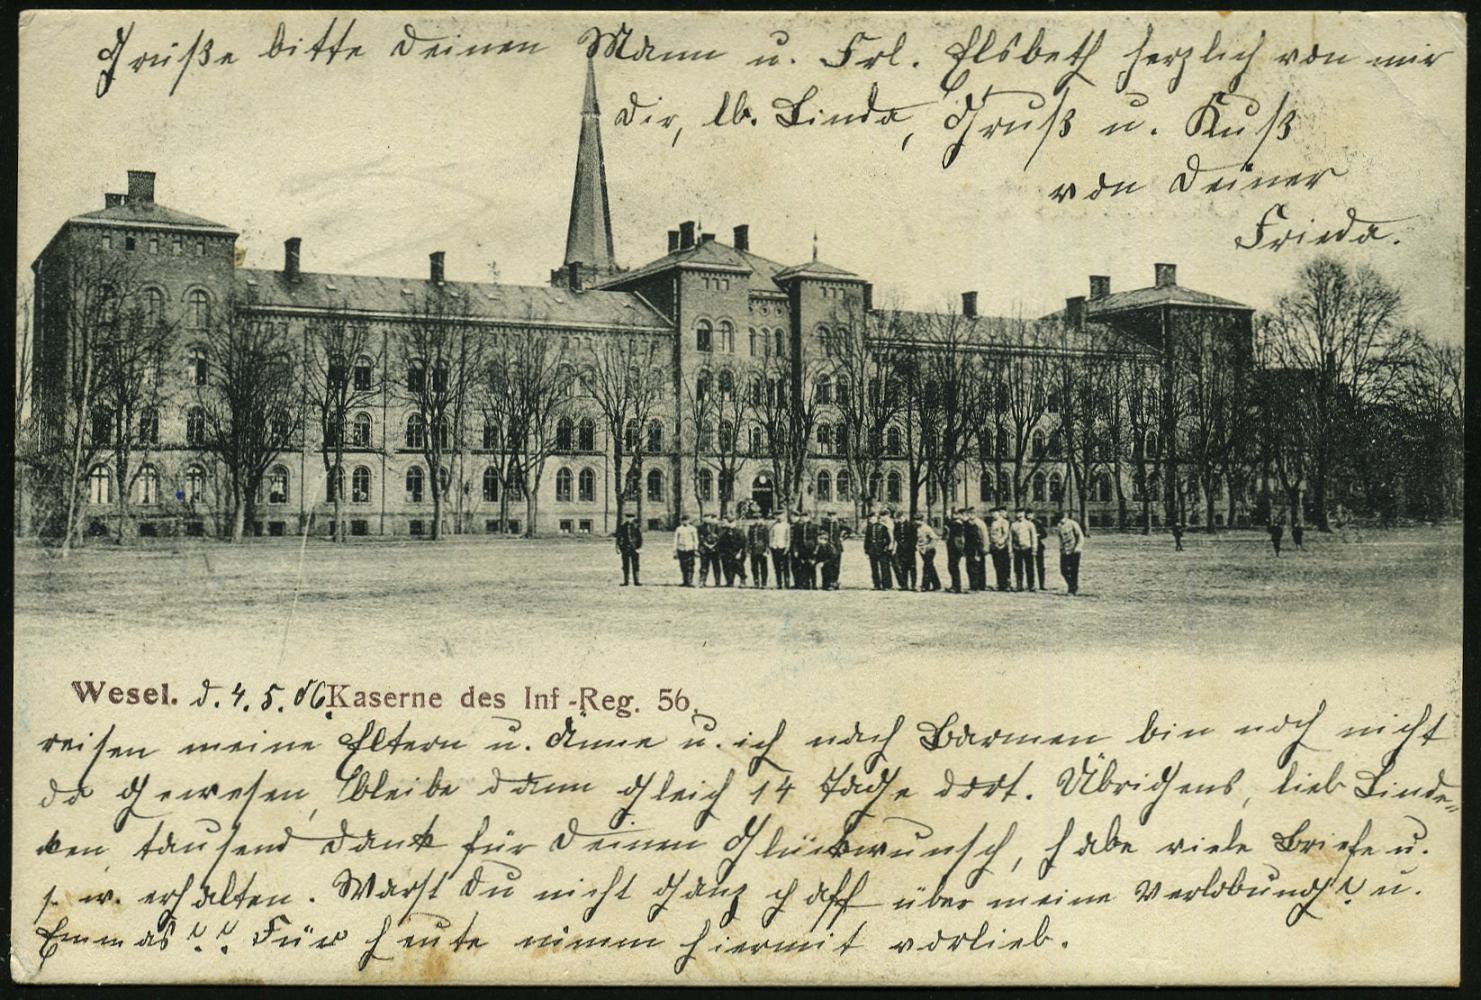 Grüße bitte Deinen Mann u. Frl. Elsbeth herzlich von mir
Dir, lb. Linda, Gruß u. Kuß
von Deiner
Frieda.
Wesel. d. 4. 5. 06. Kaserne des Inf-Reg. 56.
reisen meine Eltern u. Änne u. ich nach Barmen bin noch nicht
da gewesen, bleibe dann gleich 14 Tage dort. Übrigens, lieb Linde-
ken, tausend Dank für Deinen Glückwunsch, habe viele Briefe u.
s. w. erhalten. Warst Du nicht ganz paff über meine Verlobung? u.
Emmas?? Für heute nimm hiermit vorlieb.